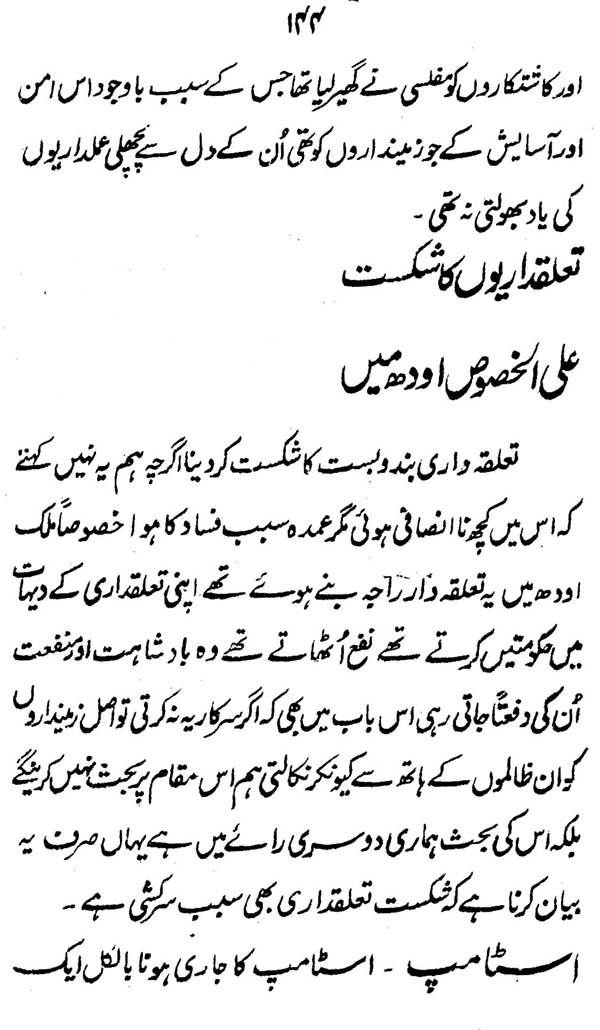 ۱۴۴
اور کاشتکاروں کو مفلسی نے گھیر لیا تھا جس کے سبب باوجود اس امن
اور آسایش کے جو زمینداروں کو تھی اُن کے دل سے پچھلی عملداریوں
کی یاد بھولتی نہ تھی ۔
تعلقداریوں کا شکست
علی الخصوص اودھ میں
تعلقہ داری بندوبست کا شکست کر دینا اگرچہ ہم یہ نہیں کہتے
کہ اس میں کچھ نا انصافی ہوئی مگر عمدہ سبب فساد کا ہوا خصوصاً ملک
اودھ میں یہ تعلقہ دار راجہ بنے ہوئے تھے اپنی تعلقداری کے دیہات
میں حکومتیں کرتے تھے نفع اُٹھاتے تھے وہ بادشاہت اور منفعت
اُن کی دفعتاً جاتی رہی اس باب میں بھی کہ اگر سرکار یہ نہ کرتی تو اصل زمینداروں
کو ان ظالموں کے ہاتھ سے کیونکر نکالتی ہم اس مقام پر بحث نہیں کرینگے
بلکہ اس کی بحث ہماری دوسری رائے میں ہے یہاں صرف یہ
بیان کرنا ہے کہ شکست تعلقداری بھی سبب سرکشی ہے ۔
اسٹامپ ۔ اسٹامپ کا جاری ہونا بالکل ایک